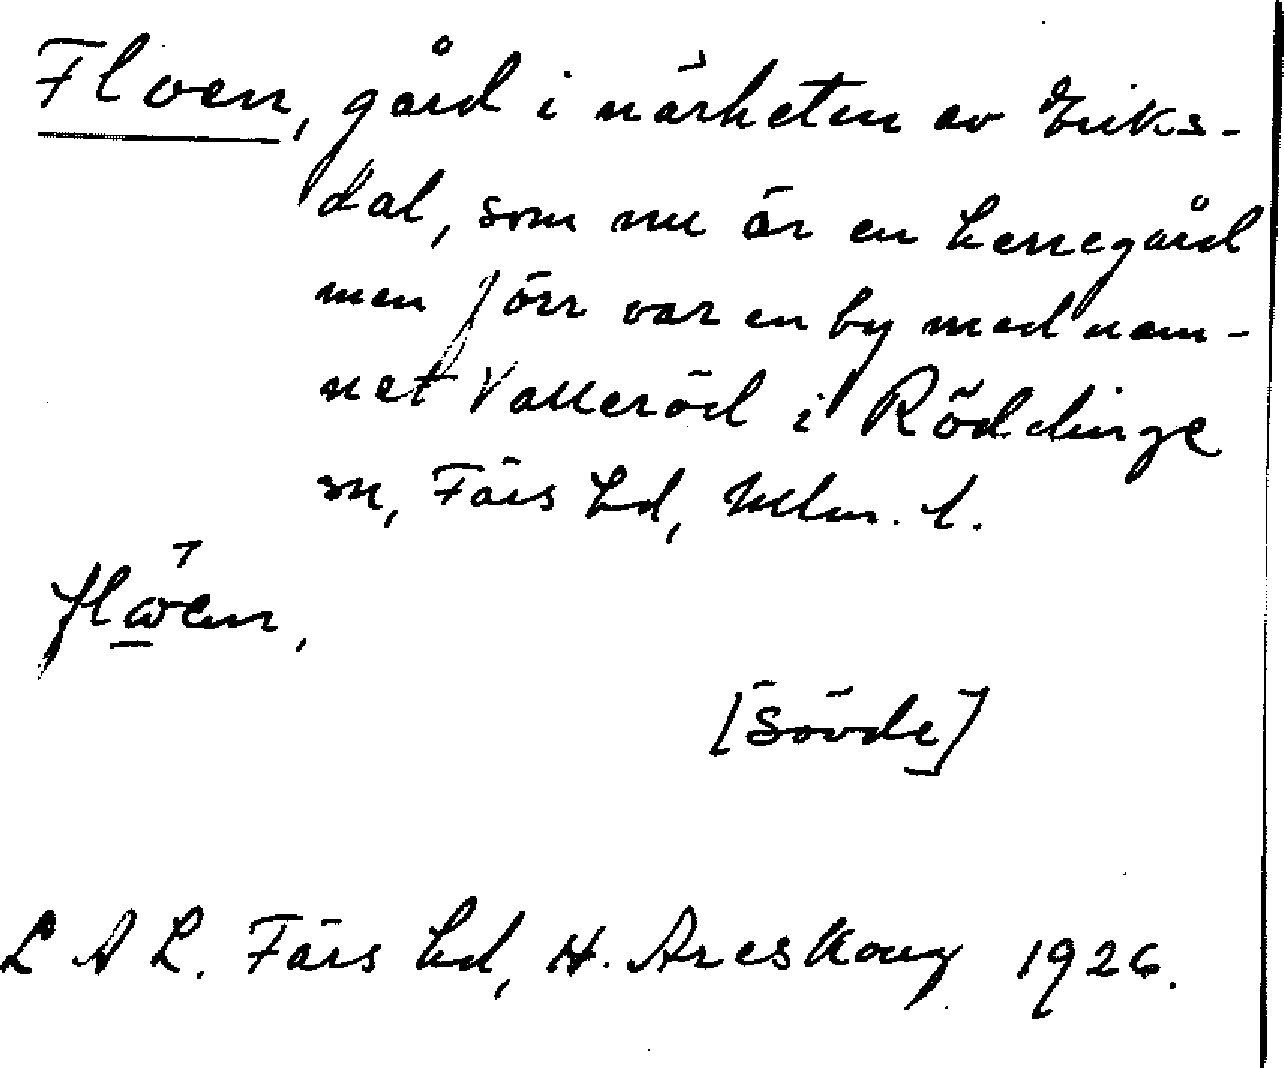 Floen, gård i närheten av Eriks-
dal, som nu är en herregård
men förr var en by med nam-
net Valleröd i Röddinge
sn, Färs hd, Mlm. l.
flөen,
[Sövde]
L A L. Färs hd, H. Areskoug 1926.